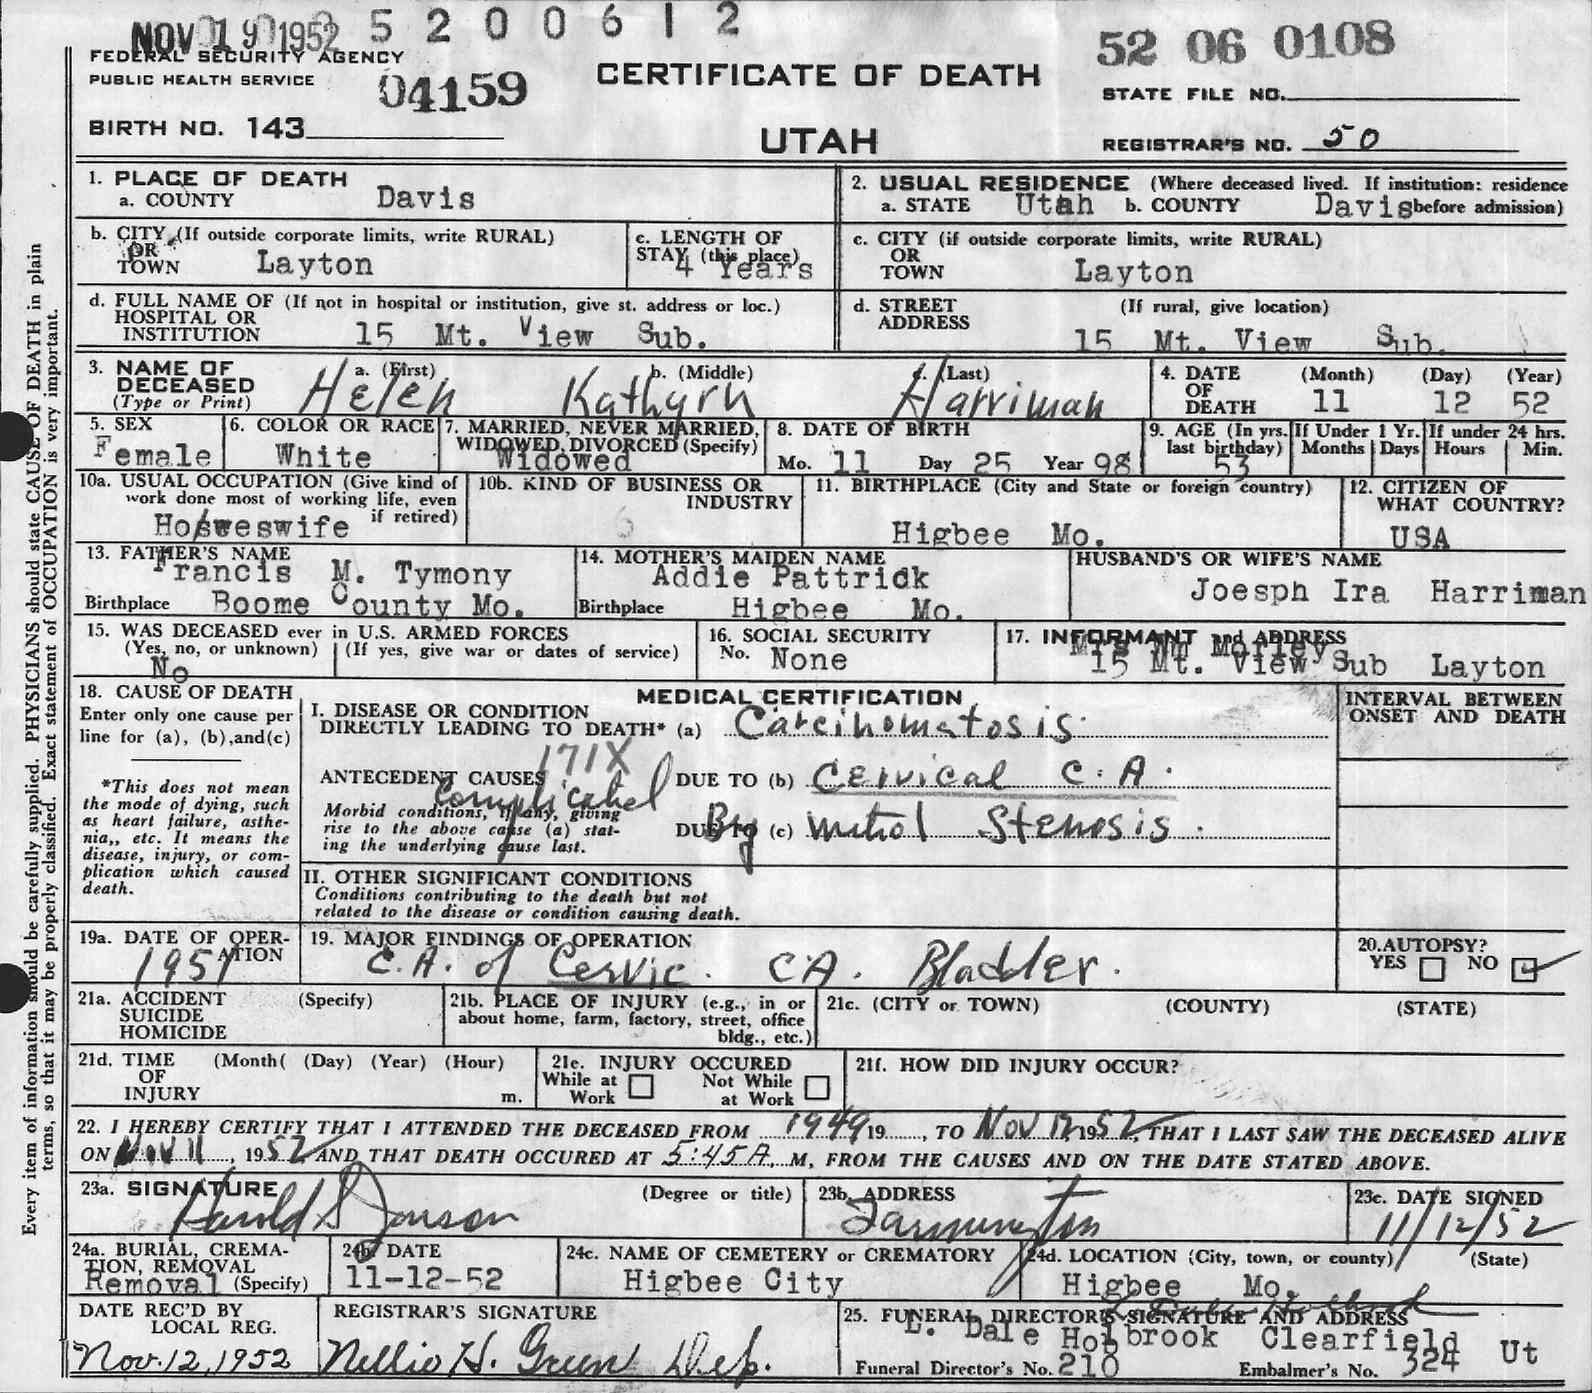 NOV 19 1952 5 2 0 0 6 1 2
52 06 0108
FEDERAL SECURITY AGENCY
PUBLIC HEALTH SERVICE
04159
CERTIFICATE OF DEATH
STATE FILE NO.
BIRTH NO. 143
UTAH
REGISTRAR'S NO. 50
1. PLACE OF DEATH
a. COUNTY Davis
2. USUAL RESIDENCE (Where deceased lived. If institution: residence
a. STATE Utah b. COUNTY Davis before admission)
b. CITY (If outside corporate limits, write RURAL)
OR
TOWN Layton
c. LENGTH OF
STAY (this place)
4 Years
c. CITY (if outside corporate limits, write RURAL)
OR
TOWN Layton
d. FULL NAME OF (If not in hospital or institution, give st. address or loc.)
HOSPITAL OR
INSTITUTION 15 Mt. View Sub.
d. STREET (If rural, give location)
ADDRESS
15 Mt. View Sub.
3. NAME OF
DECEASED
(Type or Print)
a. (First) b. (Middle) c. (Last)
Helen Kathyrn Harriman
4. DATE (Month) (Day) (Year)
OF
DEATH 11 12 52
5. SEX
Female
6. COLOR OR RACE
White
7. MARRIED, NEVER MARRIED,
WIDOWED, DIVORCED (Specify)
Widowed
8. DATE OF BIRTH
Mo. 11 Day 25 Year 98
9. AGE (In yrs.
last birthday)
53
If Under 1 Yr.
Months Days
If under 24 hrs.
Hours Min.
10a. USUAL OCCUPATION (Give kind of
work done most of working life, even
if retired)
Hosweswife
10b. KIND OF BUSINESS OR
INDUSTRY
11. BIRTHPLACE (City and State or foreign country)
Higbee Mo.
12. CITIZEN OF
WHAT COUNTRY?
USA
13. FATHER'S NAME
Francis M. Tymony
Birthplace Boome County Mo.
14. MOTHER'S MAIDEN NAME
Addie Pattrick
Birthplace Higbee Mo.
HUSBAND'S OR WIFE'S NAME
Joesph Ira Harriman
15. WAS DECEASED ever in U.S. ARMED FORCES
(Yes, no, or unknown) (If yes, give war or dates of service)
No
16. SOCIAL SECURITY
No. None
17. INFORMANT and ADDRESS
Mrs Wm Morley
15 Mt. View Sub Layton
18. CAUSE OF DEATH
Enter only one cause per
line for (a), (b),and(c)
*This does not mean
the mode of dying, such
as heart failure, asthe-
nia,, etc. It means the
disease, injury, or com-
plication which caused
death.
MEDICAL CERTIFICATION
I. DISEASE OR CONDITION
DIRECTLY LEADING TO DEATH* (a) Carcinomatosis.
171X
ANTECEDENT CAUSES DUE TO (b) Cervical C.A.
Complicated
Morbid conditions, if any, giving
rise to the above cause (a) stat-
ing the underlying cause last.
By
DUE TO (c) Mitrol Stenosis.
II. OTHER SIGNIFICANT CONDITIONS
Conditions contributing to the death but not
related to the disease or condition causing death.
INTERVAL BETWEEN
ONSET AND DEATH
19a. DATE OF OPER-
ATION
1951
19. MAJOR FINDINGS OF OPERATION
C.A. of Cervic. CA. Bladder.
20. AUTOPSY?
YES NO
21a. ACCIDENT (Specify)
SUICIDE
HOMICIDE
21b. PLACE OF INJURY (e.g., in or
about home, farm, factory, street, office
bldg., etc.)
21c. (CITY or TOWN) (COUNTY) (STATE)
21d. TIME (Month( (Day) (Year) (Hour)
OF
INJURY m.
21e. INJURY OCCURED
While at Work Not While at Work
21f. HOW DID INJURY OCCUR?
22. I HEREBY CERTIFY THAT I ATTENDED THE DECEASED FROM 1949 19......, TO Nov 12, 1952, THAT I LAST SAW THE DECEASED ALIVE
ON Nov 11, 1952 AND THAT DEATH OCCURED AT 5:45 A. M, FROM THE CAUSES AND ON THE DATE STATED ABOVE.
23a. SIGNATURE (Degree or title)
Harold S Jonson
23b. ADDRESS
Farmington
23c. DATE SIGNED
11/12/52
24a. BURIAL, CREMA-
TION, REMOVAL
Removal (Specify)
24b. DATE
11-12-52
24c. NAME OF CEMETERY or CREMATORY
Higbee City
24d. LOCATION (City, town, or county) (State)
Higbee Mo.
DATE REC'D BY
LOCAL REG.
Nov. 12, 1952
REGISTRAR'S SIGNATURE
Nellie H. Green Dep.
25. FUNERAL DIRECTOR'S SIGNATURE AND ADDRESS
L. Dale Holbrook Clearfield Ut
Funeral Director's No. 210 Embalmer's No. 324
Every item of information should be carefully supplied. PHYSICIANS should state CAUSE OF DEATH in plain
terms, so that it may be properly classified. Exact statement of OCCUPATION is very important.